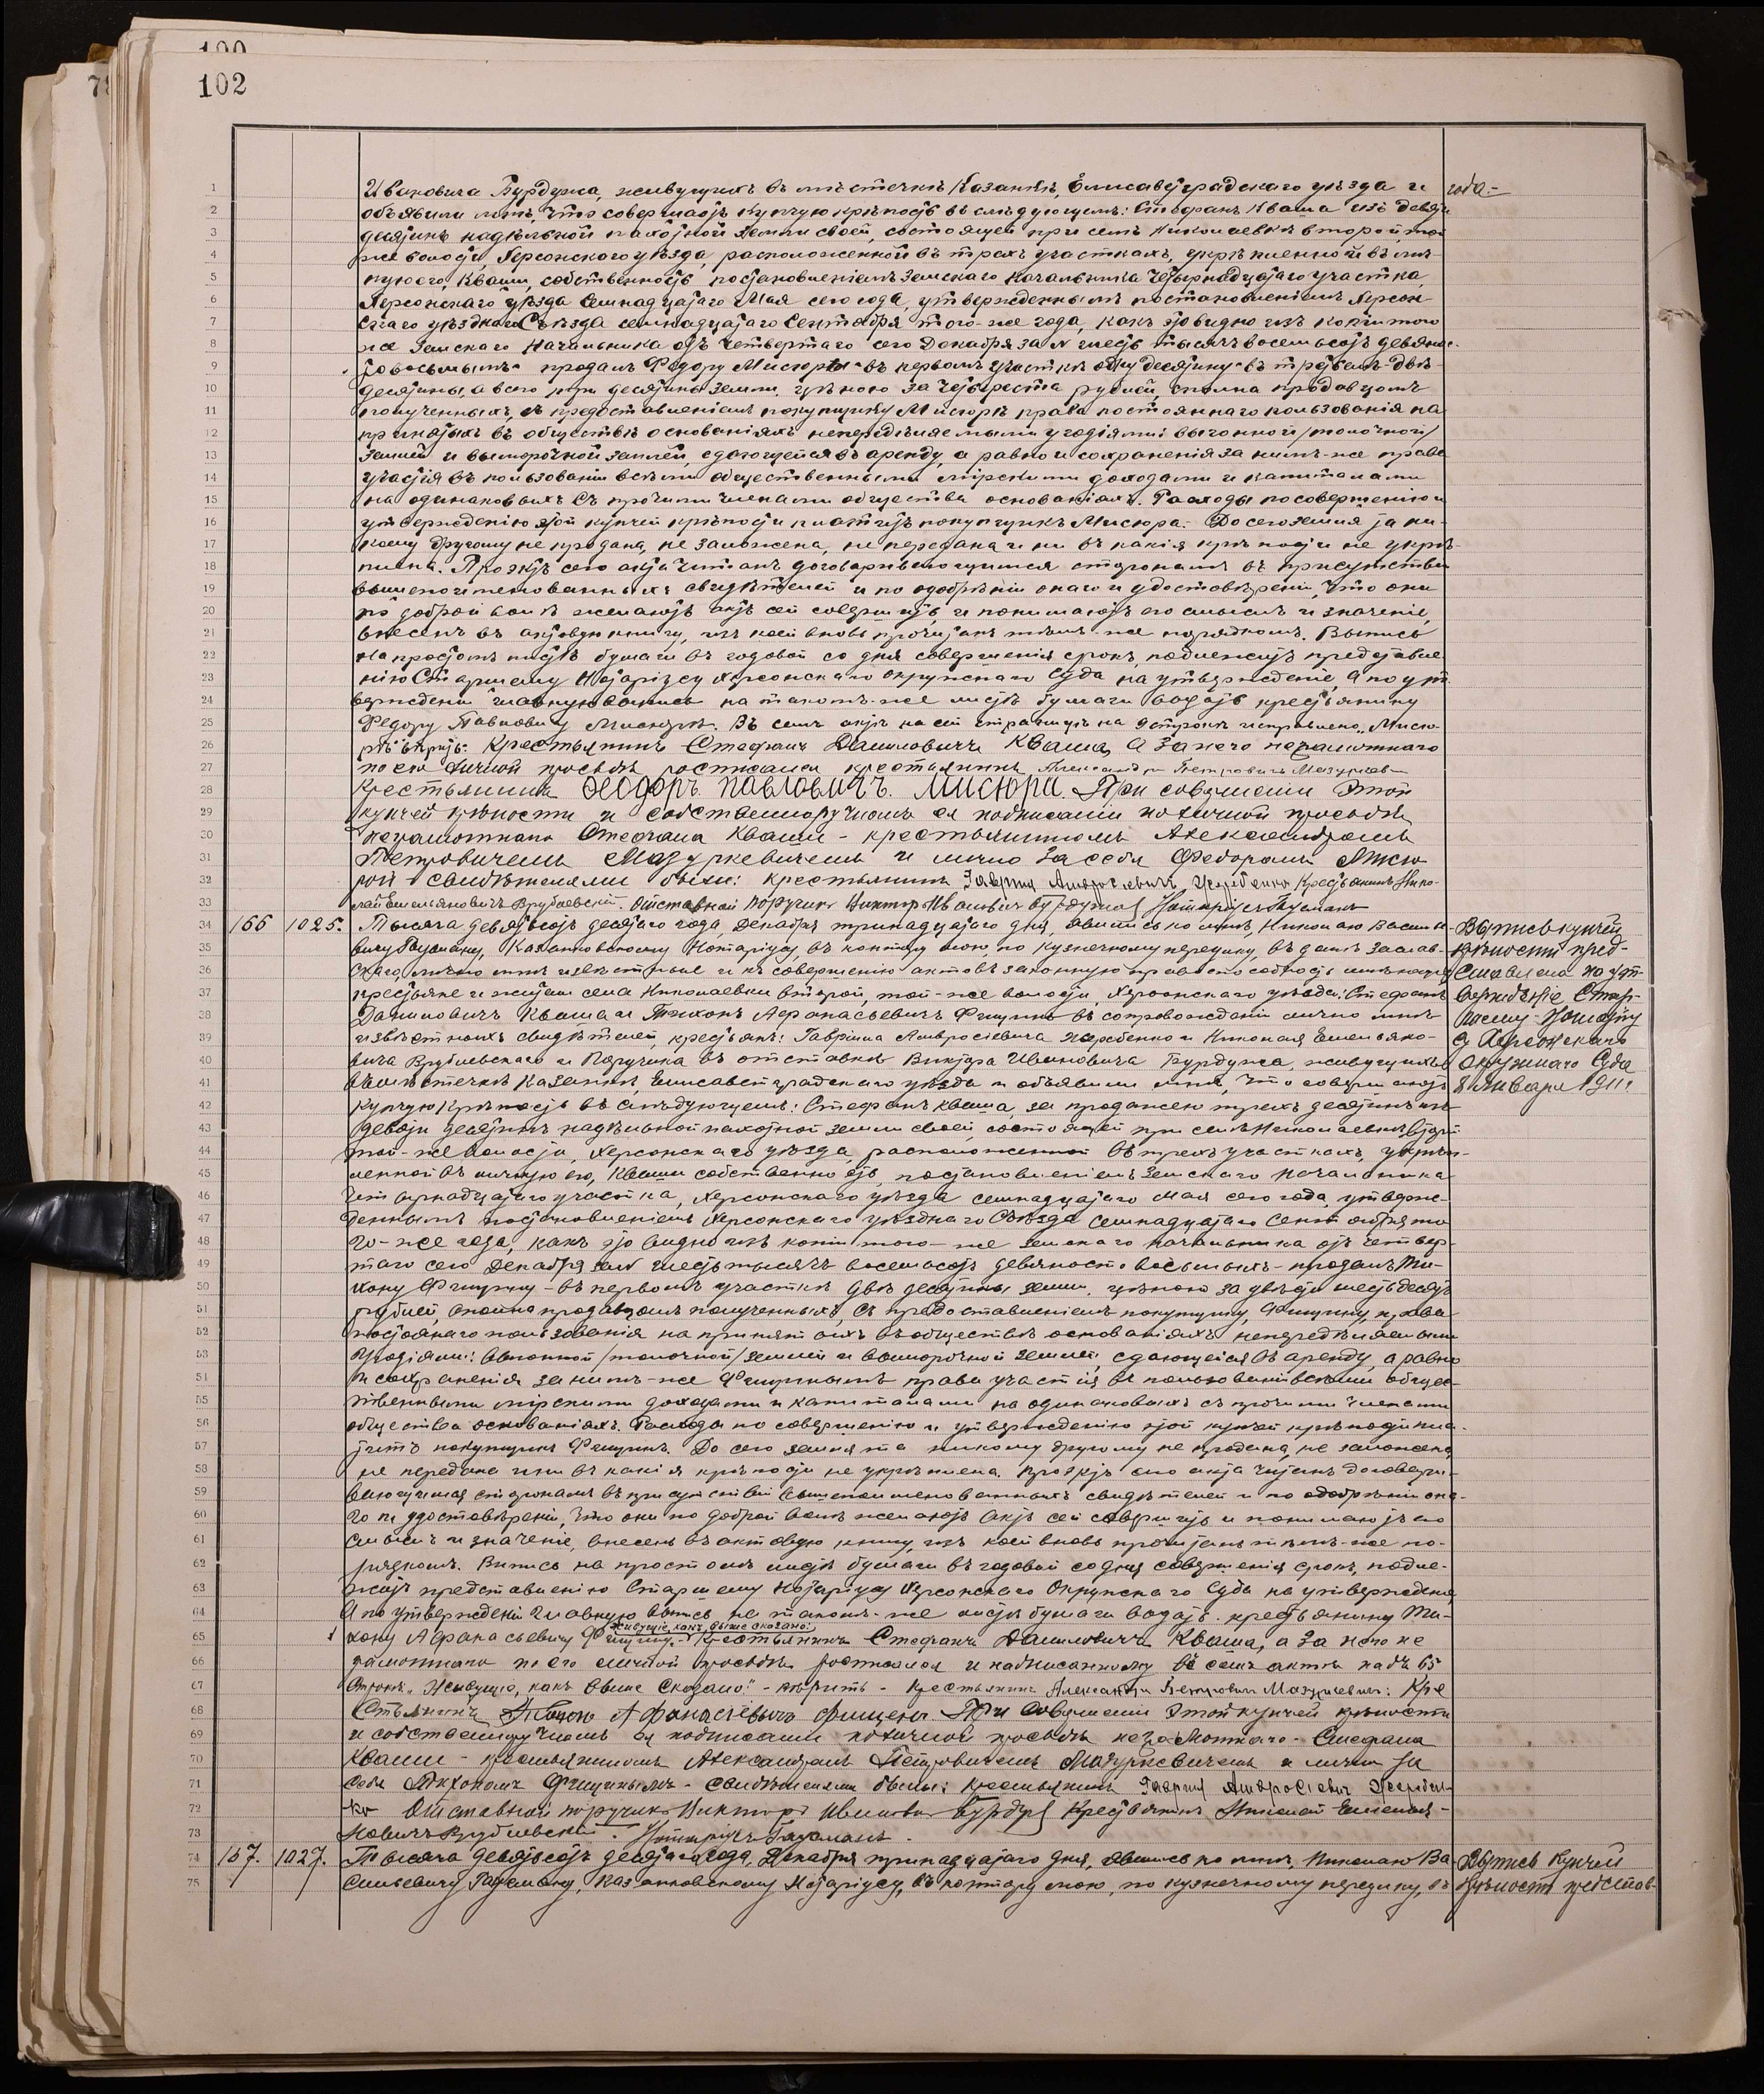 100
102
Ивановича Бурдужа, живущихъ въ мѣстечкѣ Казанкѣ, Елисаветградскаго уѣзда и
года.-
объявили мнѣ, что совершаютъ купчую крѣпость въ слѣдующемъ: Стефанъ Кваша изъ девяти
десятинъ надѣльной пахотной земли своей, состоящей при селѣ Николаевкѣ второй, той
же волости, Херсонскаго уѣзда, расположенной въ трехъ участкахъ, укрѣпленной въ лич-
ную его, Кваши, собственность постановленіемъ Земскаго Начальника Четырнадцатаго участка,
Херсонскаго уѣзда Семнадцатаго Мая сего года, утвержденнымъ постановленіемъ Херсон-
скаго уѣзднаго Съѣзда семнадцатаго Сентября того-же года, какъ это видно изъ копіи того
же Земскаго Начальника отъ Четвертаго сего Декабря за N шесть тысячъ восемьсотъ девяно-
сто восьмымъ- продалъ Федору Мисюрѣ въ первомъ участкѣ одну десятину въ третьемъ- двѣ
десятины, а всего три десятины земли, цѣною за четыреста рублей, сполна продавцомъ
полученныхъ, съ предоставленіемъ покупщику Мисюрѣ права постояннаго пользованія на
принятыхъ въ обществѣ основаніяхъ непередѣляемыми угодіями: выгонной /толочной/
землей и выморочной землей, сдающейся въ аренду, а равно и сохраненія за нимъ-же права
участія въ пользованіи всѣми общественными мірскими доходами и капиталами
на одинаковыхъ съ прочими членами общества основаніяхъ. Расходы по совершенію и
утвержденію этой купчей крѣпости платитъ покупщикъ Мисюра. До сего земля та ни-
кому другому не продана, не заложена, не передана и ни въ какія крѣпости не укрѣ-
плена. Проэктъ сего акта читанъ договаривающимся сторонамъ въ присутствіи
вышепоименованныхъ свидѣтелей и по одобреніи онаго и удостовѣреніи, что они
по доброй волѣ желаютъ актъ сей совершить и понимаютъ его смыслъ и значеніе,
внесенъ въ актовую книгу, изъ коей вновь прочитанъ тѣмъ-же порядкомъ. Выпись
на простомъ листѣ бумаги въ годовой со дня совершенія срокъ, подлежитъ представле-
нію Старшему Нотаріусу Херсонскаго Окружнаго Суда на утвержденіе, а по ут-
вержденіи главную выпись на такомъ-же листѣ бумаги выдать крестьянину
Федору Павловичу Мисюрѣ. Въ семъ актѣ на сей страницѣ на 9 строкѣ исправлено „Мисю-
рѣ" вѣрить. Крестьянинъ Стефанъ Даниловичъ Кваша, а за него неграмотнаго
по его личной просьбѣ росписался крестьянинъ Александръ Петровичъ Мазуркевичъ
Крестьянинъ Ѳеодоръ Павловичъ Мисюра. При совершеніи этой
купчей крѣпости и собственноручномъ ея подписаніи по личной просьбѣ
неграмотнаго Стефана Кваши - крестьяниномъ Александромъ
Петровичемъ Мазуркевичемъ и лично за себя Федоромъ Мисю-
рой - свидѣтелями были: крестьянинъ Гавріилъ Амвросіевичъ Жеребенко Крестьянинъ Нико-
лай Емельяновичъ Врублевскій. Отставной Поручикъ Викторъ Ивановичъ Бурдужа Нотаріусъ Гаусманъ
166
1025.
Тысяча девятьсотъ десятаго года, Декабря тринадцатаго дня, явились ко мнѣ, Николаю Василье-
Выпись купчей
вичу Гаусману, Казанковскому Нотаріусу, въ контору мою, по кузнечному переулку, въ домѣ Заслав-
крѣпости пред-
скаго, лично мнѣ извѣстные и къ совершенію актовъ законную правоспособность имѣющіе
ставлена на ут-
крестьяне и жители села Николаевки второй, той-же волости, Херсонскаго уѣзда: Стефанъ
вержденіе Стар-
Даниловичъ Кваша и Тихонъ Афанасьевичъ Фищинъ въ сопровожденіи лично мнѣ
шему Нотаріу
извѣстныхъ свидѣтелей, крестьянъ: Гавріила Амвросіевича Жеребенко и Николая Емельяно-
су Херсонскаго
вича Врублевскаго и Поручика въ отставкѣ Виктора Ивановича Бурдужа, живущихъ
Окружнаго Суда
въ мѣстечкѣ Казанкѣ, Елисаветградскаго уѣзда и объявили мнѣ, что совершаютъ
8 Января 1911 г.
купчую крѣпость въ слѣдующемъ: Стефанъ Кваша, за продажею трехъ десятинъ изъ
девяти десятинъ надѣльной пахотной земли своей, состоящей при селѣ Николаевкѣ второй
той-же волости, Херсонскаго уѣзда, расположенной въ трехъ участкахъ, укрѣп-
ленной въ личную его, Кваши собственность, постановленіемъ Земскаго Начальника
Четырнадцатаго участка, Херсонскаго уѣзда семнадцатаго Мая сего года, утверж-
деннымъ постановленіемъ Херсонскаго уѣзднаго Съѣзда семнадцатаго Сентября то-
го-же года, какъ это видно изъ копіи того-же земскаго начальника отъ Четвер-
таго сего Декабря за N шесть тысячъ восемьсотъ девяносто восьмымъ- продалъ Ти-
хону Фищину- въ первомъ участкѣ двѣ десятины земли, цѣною за двѣсти шестьдесятъ
рублей, сполна продавцомъ полученныхъ, съ предоставленіемъ покупщику, Фищину, права
постояннаго пользованія на принятыхъ въ обществѣ основаніяхъ непередѣляемыми
угодіями: выгонной /толочной/ землей и выморочной землей, сдающейся въ аренду, а равно
и сохраненія за нимъ-же Фищинымъ права участія въ пользованіи всѣми общес-
твенными мірскими доходами и капиталами на одинаковыхъ съ прочими членами
общества основаніяхъ. Расходы по совершенію и утвержденію этой купчей крѣпости пла-
титъ покупщикъ Фищинъ. До сего земля та никому другому не продана, не заложена,
не передана и ни въ какія крѣпости не укрѣплена. Проэктъ сего акта читанъ договари-
вающимся сторонамъ въ присутствіи вышепоименованныхъ свидѣтелей и по одобреніи она-
го и удостовѣреніи, что они по доброй волѣ желаютъ актъ сей совершить и понимаютъ его
смыслъ и значеніе, внесенъ въ актовую книгу, изъ коей вновь прочитанъ тѣмъ-же по-
рядкомъ. Выпись на простомъ листѣ бумаги въ годовой со дня совершенія срокъ, подле-
житъ представленію Старшему Нотаріусу Херсонскаго Окружнаго Суда на утвержденіе,
а по утвержденіи главную выпись на такомъ-же листѣ бумаги выдать крестьянину Ти-
живущіе, какъ выше сказано:
хону Афанасьевичу Фищину.- Крестьянинъ Стефанъ Даниловичъ Кваша, а за него не
грамотнаго по его личной просьбѣ росписался и надписанному въ семъ актѣ надъ 65
строкъ „Живущіе, какъ выше сказано" - вѣрить - Крестьянинъ Александръ Петровичъ Мазуркевичъ: Кре
стьянинъ Тихонъ Афанасіевичъ Фищенъ При совершеніи этой купчей крѣпости
и собственноручномъ ея подписаніи по личной просьбѣ неграмотнаго - Стефана
Кваши - крестьяниномъ Александромъ Петровичемъ Мазуркевичемъ и лично за
себя Тихономъ Фищинымъ - свидѣтелями были: крестьянинъ Гавріилъ Амвросіевичъ Жеребен-
ко Отставной поручикъ Викторъ Ивановичъ Бурдужа Крестьянинъ Николай Емелья-
новичъ Врублевскій. Нотаріусъ Гаусманъ.
167.
1027.
Тысяча девятьсотъ десятаго года, Декабря тринадцатаго дня, явились ко мнѣ, Николаю Ва-
Выпись купчей
сильевичу Гаусману, Казанковскому Нотаріусу, въ контору мою, по кузнечному переулку, въ
крѣпости представ-